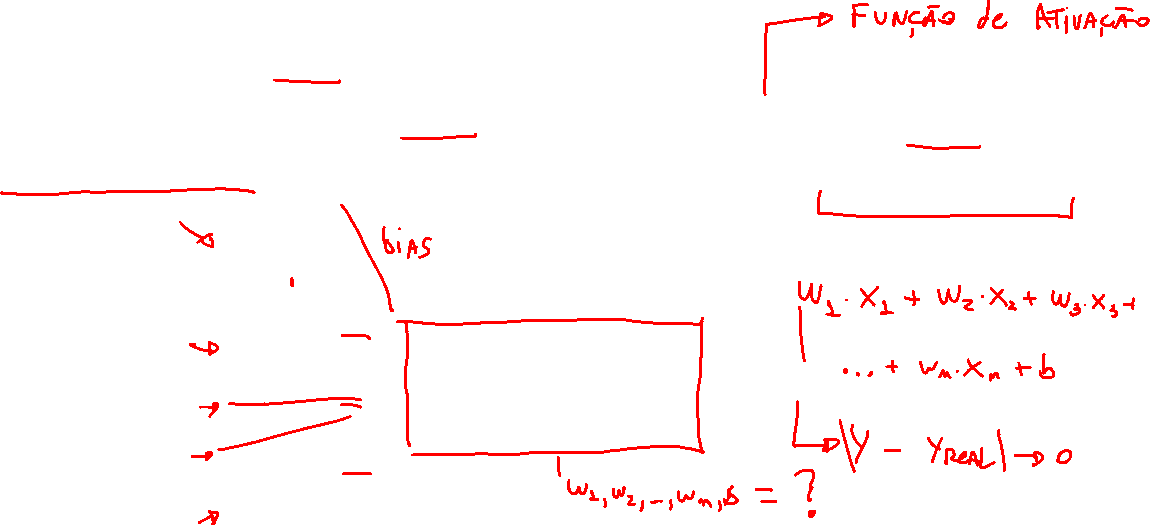 FUNÇÃO de ATIVAÇÃO
biAS
W1 · X1 + W2 · X2 + W3 · X3 +
... + Wn · Xn + b
|Y - YREAL| → 0
W1, W2, ..., Wn, b = ?